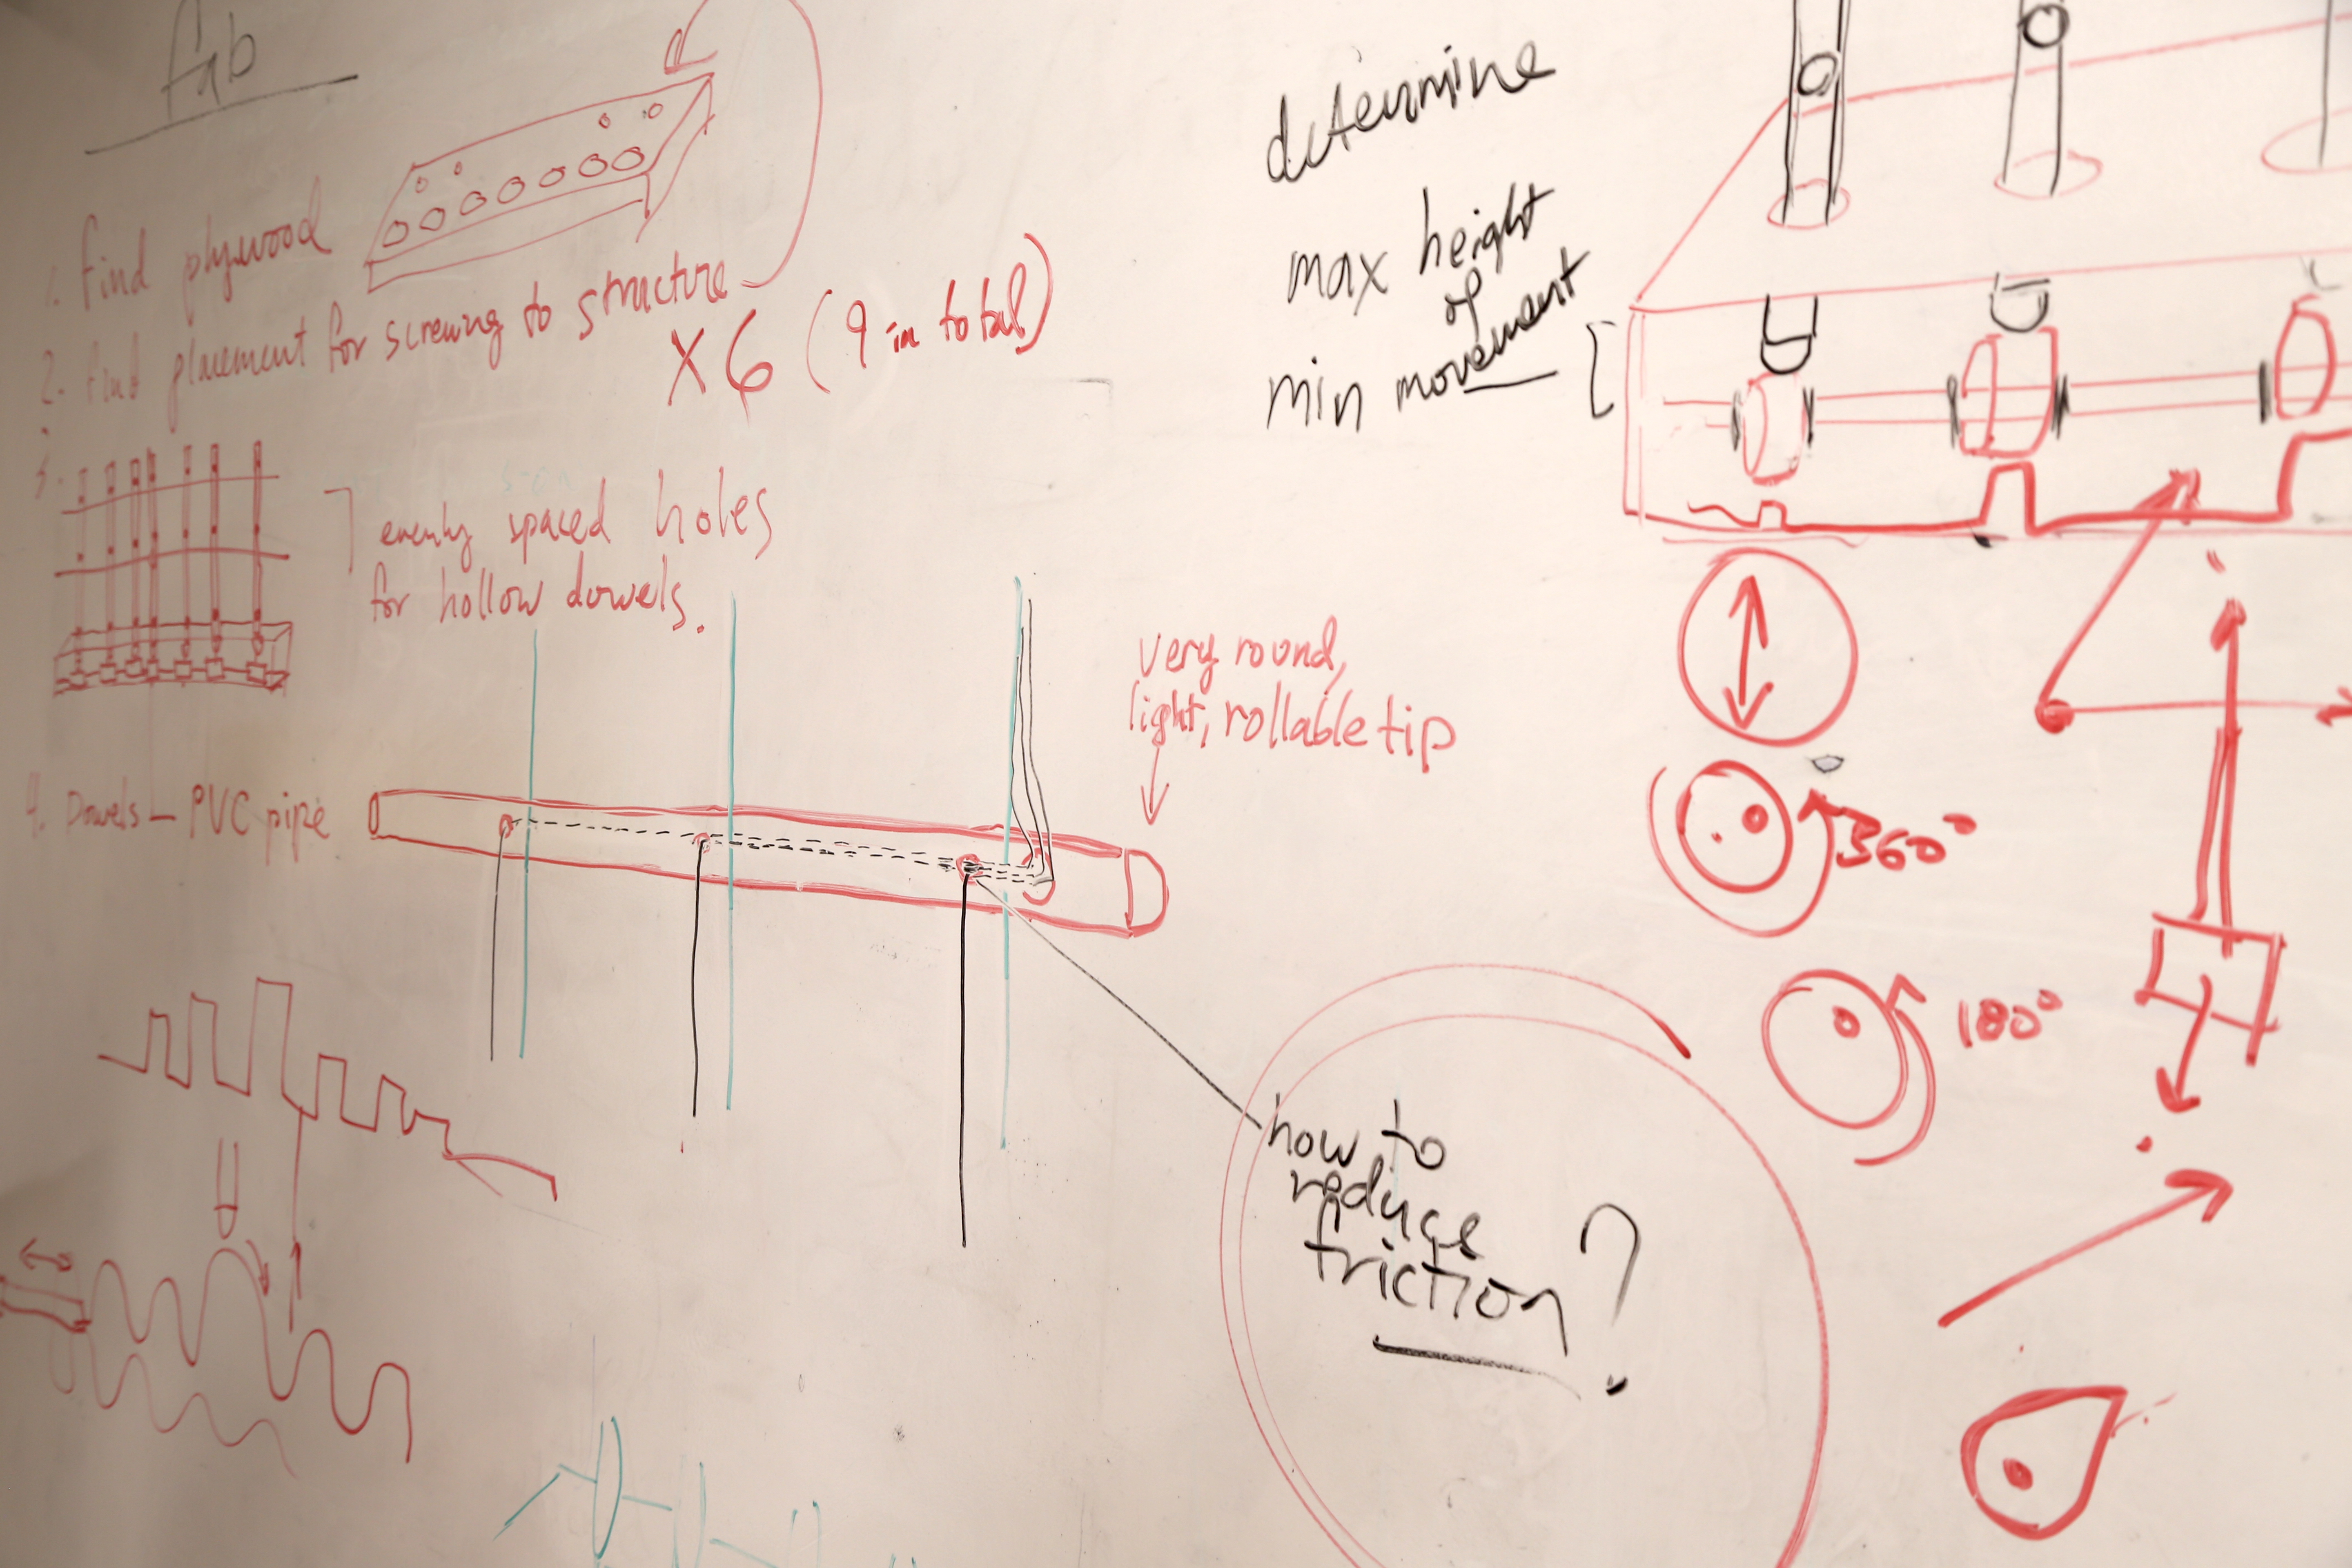 fab
1. find plywood
2. find placement for screwing to structure
x6 (9 in total)
3.
evenly spaced holes
for hollow dowels.
4. Dowels – PVC pipe
very round,
light, rollable tip
determine
max height
of
min movement
360°
180°
how to
reduce
friction?